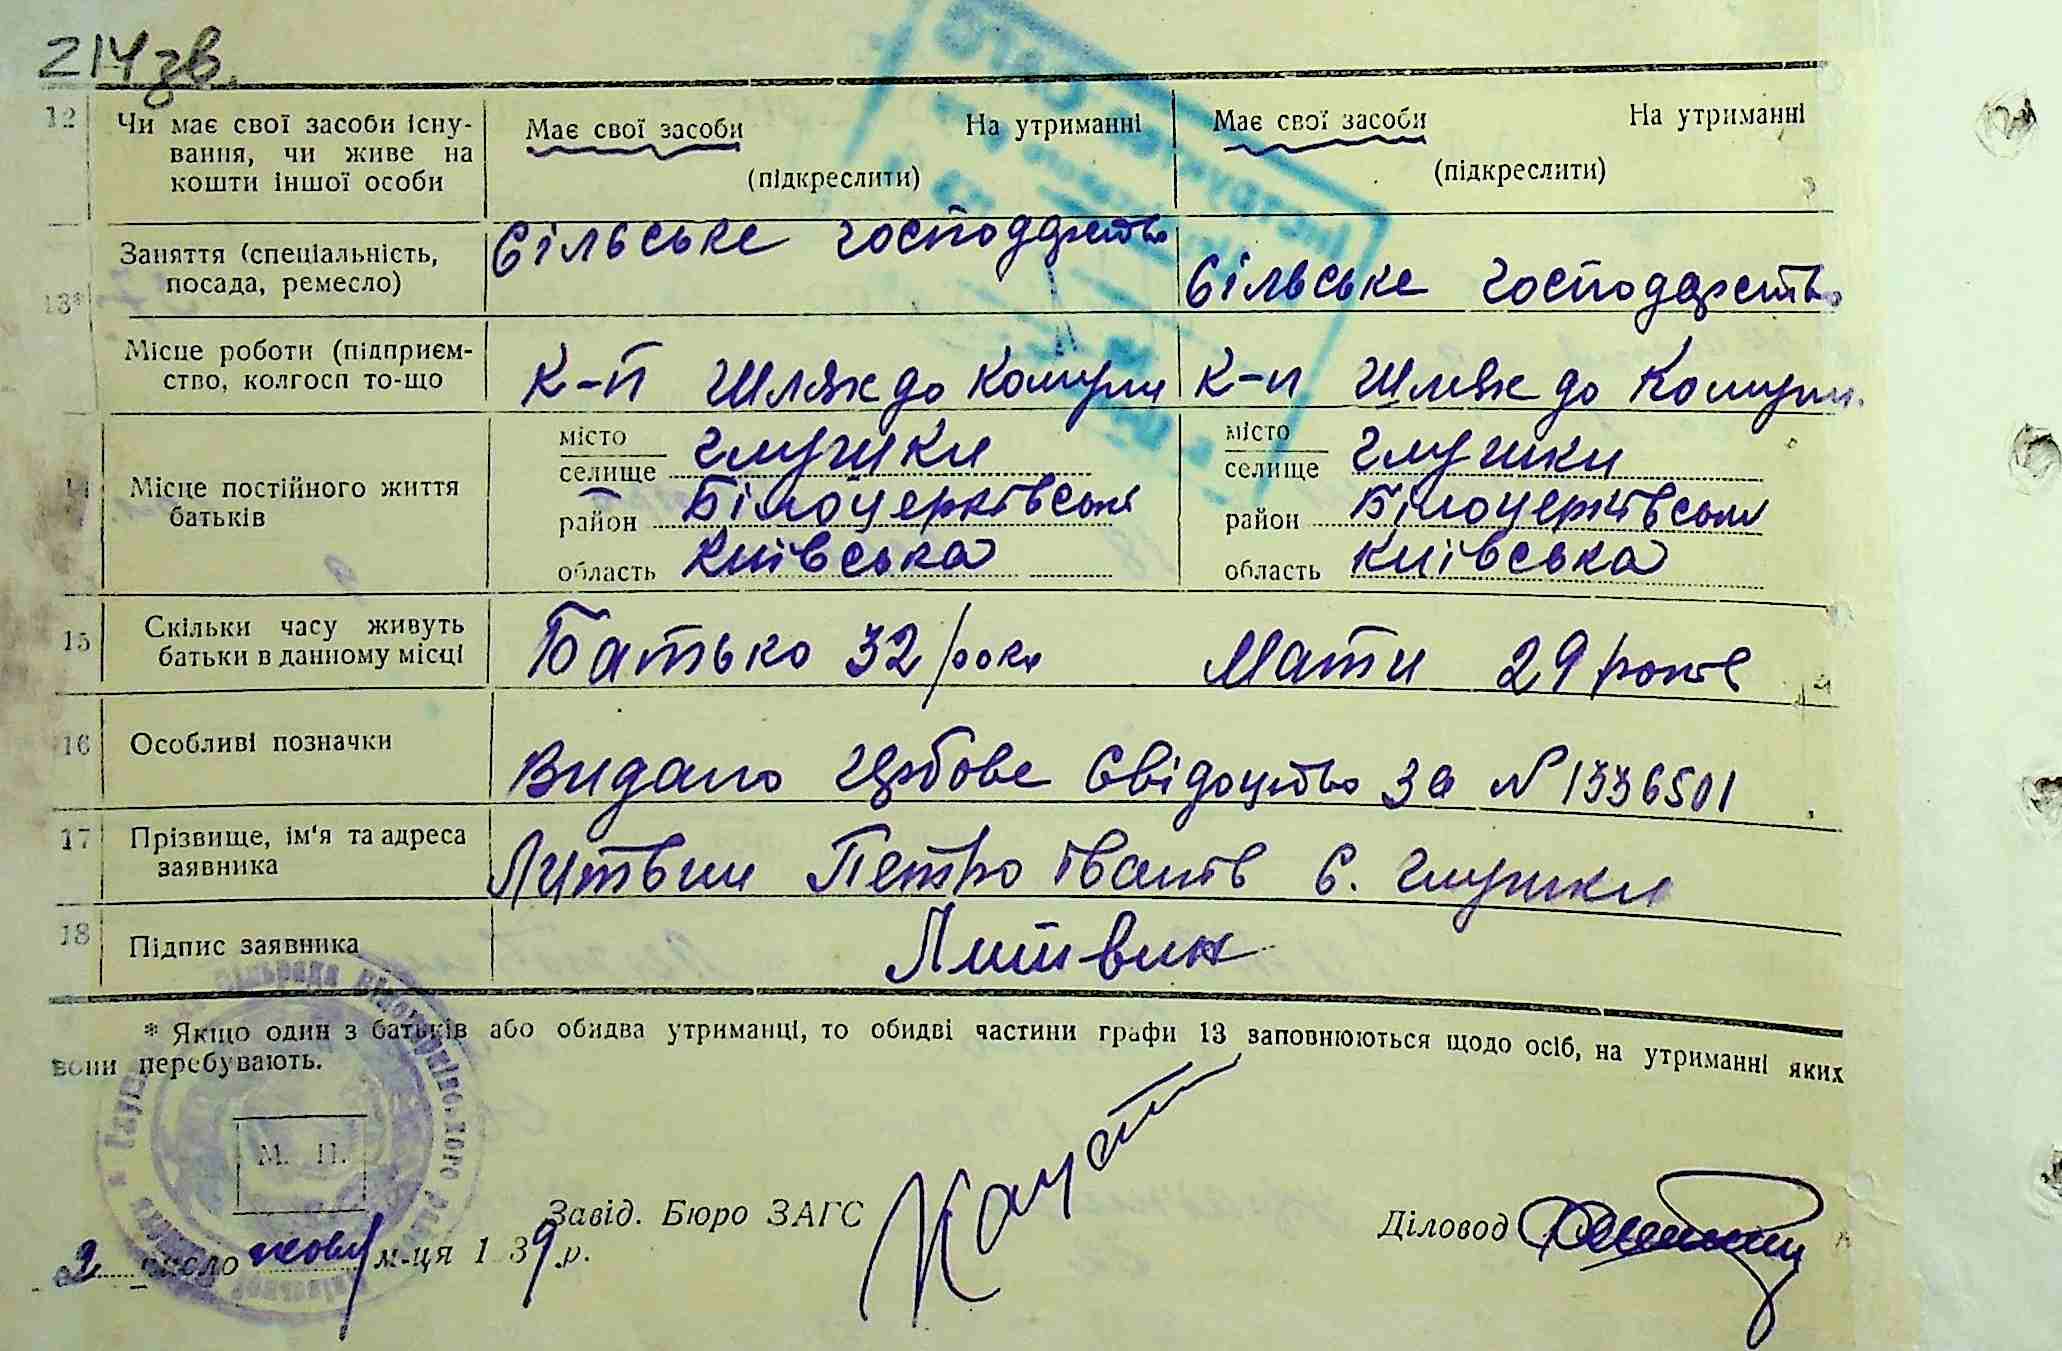 214зв.
12 Чи має свої засоби існу-
вання, чи живе на
кошти іншої особи
Має свої засоби На утриманні
(підкреслити)
Має свої засоби На утриманні
(підкреслити)
13* Заняття (спеціальність,
посада, ремесло)
Сільське господарство
Сільське господарство
Місце роботи (підприєм-
ство, колгосп то-що
К-п Шлях до Комуни
К-п Шлях до Комуни.
14 Місце постійного життя
батьків
місто
селище Глушки
район Білоцерківський
область Київська
місто
селище Глушки
район Білоцерківський
область Київська
15 Скільки часу живуть
батьки в данному місці
Батько 32/роки Мати 29/років
16 Особливі позначки
Видано Свідоцтво за № 1336501
17 Прізвище, ім'я та адреса
заявника
Литвин Петро Іванів С. Глушки
18 Підпис заявника
Литвин
* Якщо один з батьків або обидва утриманці, то обидві частини графи 13 заповнюються щодо осіб, на утриманні яких
вони перебувають.
М. П.
Завід. Бюро ЗАГС
Діловод
2 число жовт м-ця 1 39 р.